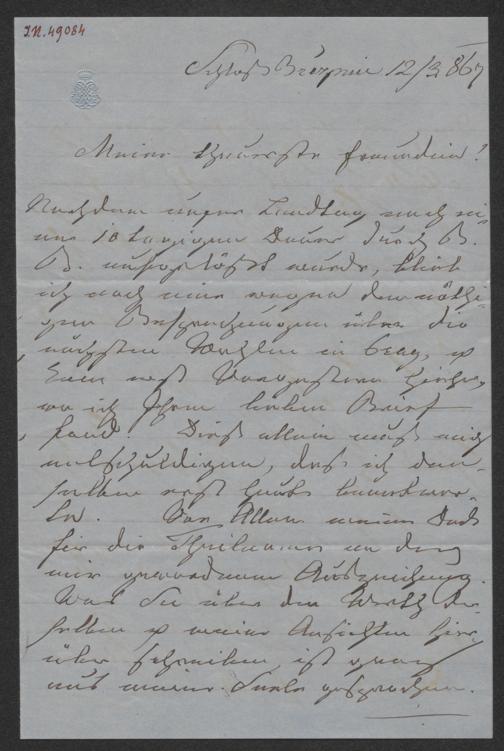 I.N. 49084
Schloß Březnic 12/3 867
Meine theuerste Freundin!
Nachdem unser Landtag nach ei-
ner 10 tägigen Dauer durch B.
B. aufgelöst wurde, blieb
ich noch eine wegen der nöthi-
gen Besprechungen über die
nächsten Wahlen in Prag, u
kam erst vorgestern hieher,
wo ich Ihren lieben Brief
fand. Dieß allein muß mich
entschuldigen, daß ich den-
selben erst heute beantwor-
te. Vor Allem meinen Dank
für die Theilnahme an der
mir gewordenen Auszeichnung.
Was Sie über den Werth der-
selben u meine Ansichten hier-
über schreiben, ist ganz
aus meiner Seele gesprochen.